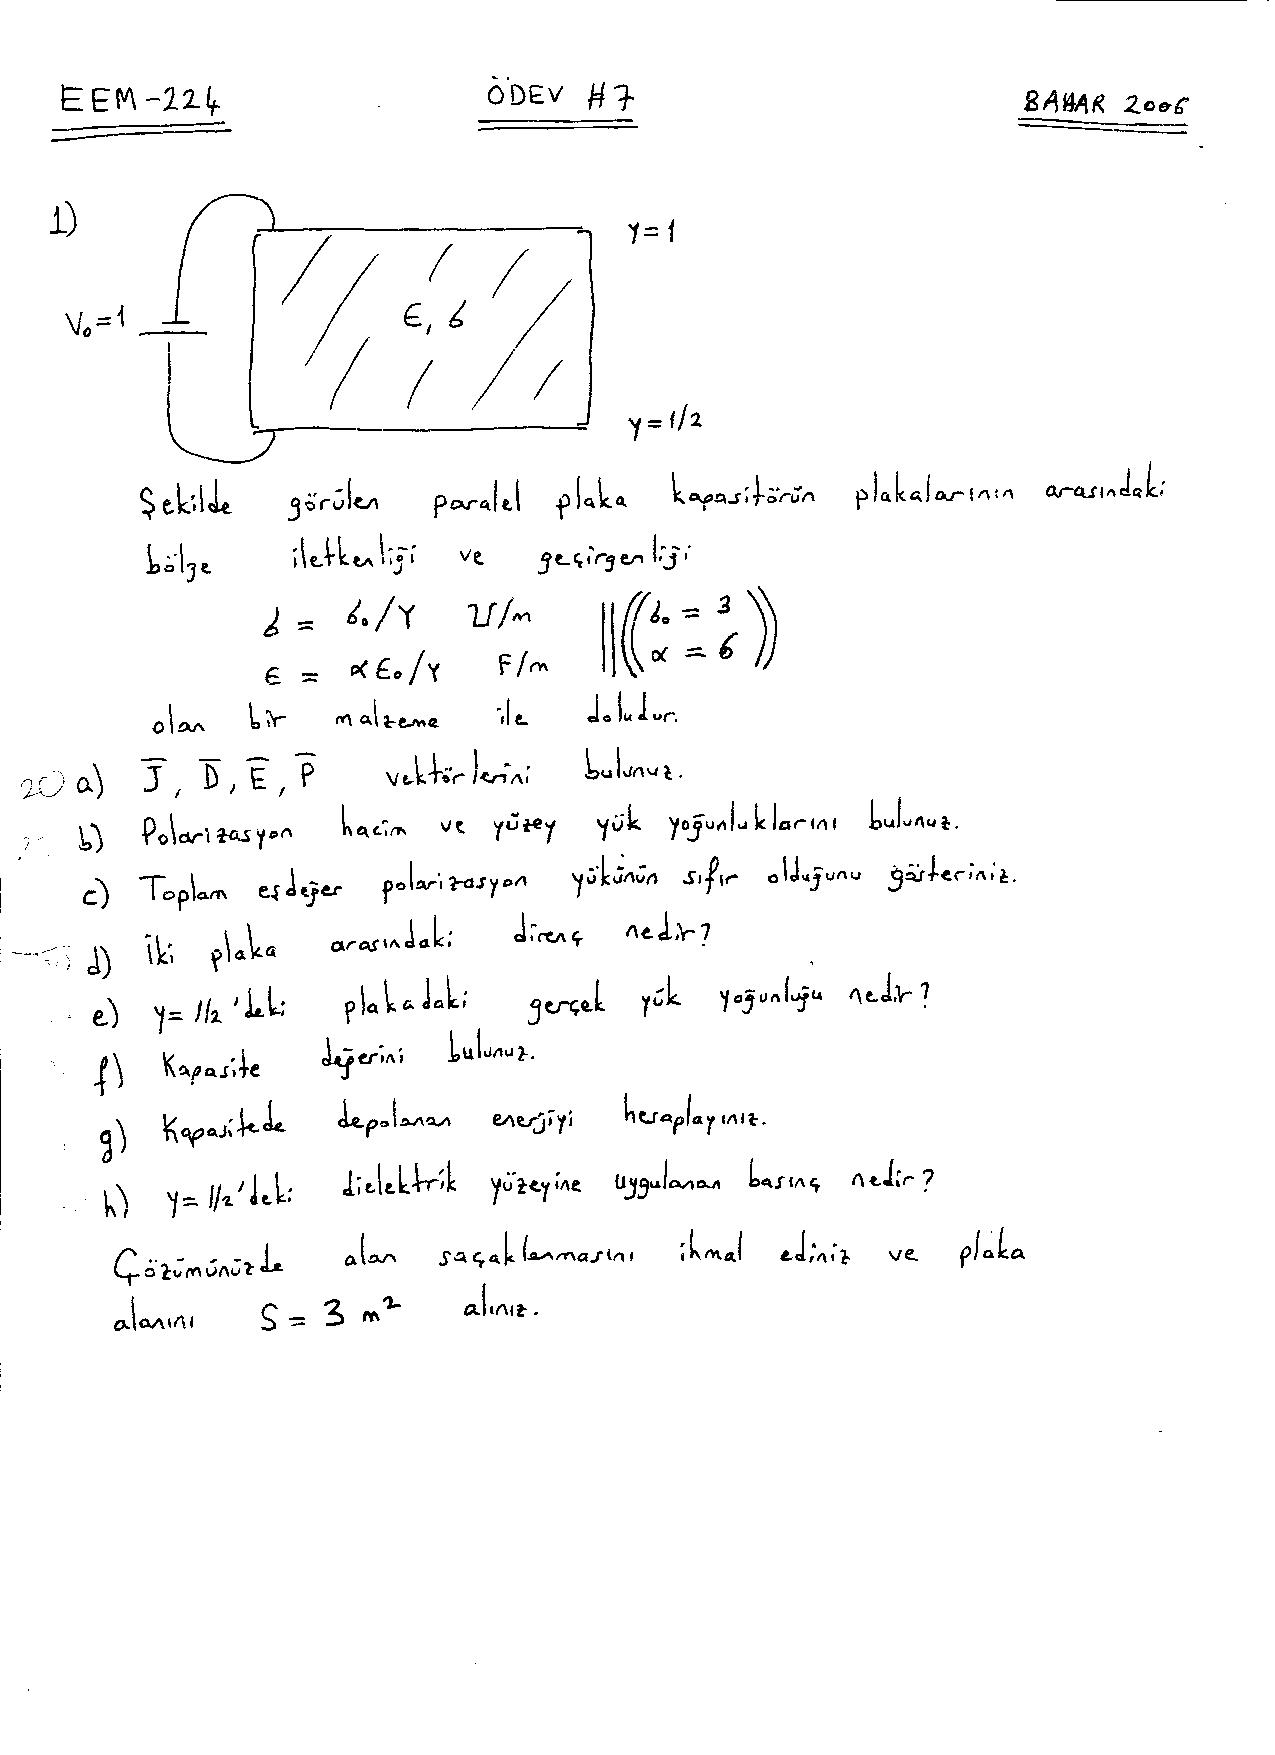 EEM-224 ÖDEV #7 BAHAR 2006
1)
y=1
V₀=1
ϵ, σ
y=1/2
Şekilde görülen paralel plaka kapasitörün plakalarının arasındaki
bölge iletkenliği ve geçirgenliği
σ = σ₀/y ℧/m ||((σ₀ = 3
ϵ = αϵ₀/y F/m α = 6))
olan bir malzeme ile doludur.
20 a) J̅, D̅, E̅, P̅ vektörlerini bulunuz.
b) Polarizasyon hacim ve yüzey yük yoğunluklarını bulunuz.
c) Toplam eşdeğer polarizasyon yükünün sıfır olduğunu gösteriniz.
d) İki plaka arasındaki direnç nedir?
e) y=1/2'deki plakadaki gerçek yük yoğunluğu nedir?
f) Kapasite değerini bulunuz.
g) Kapasitede depolanan enerjiyi hesaplayınız.
h) y=1/2'deki dielektrik yüzeyine uygulanan basınç nedir?
Çözümünüzde alan saçaklanmasını ihmal ediniz ve plaka
alanını S = 3 m² alınız.